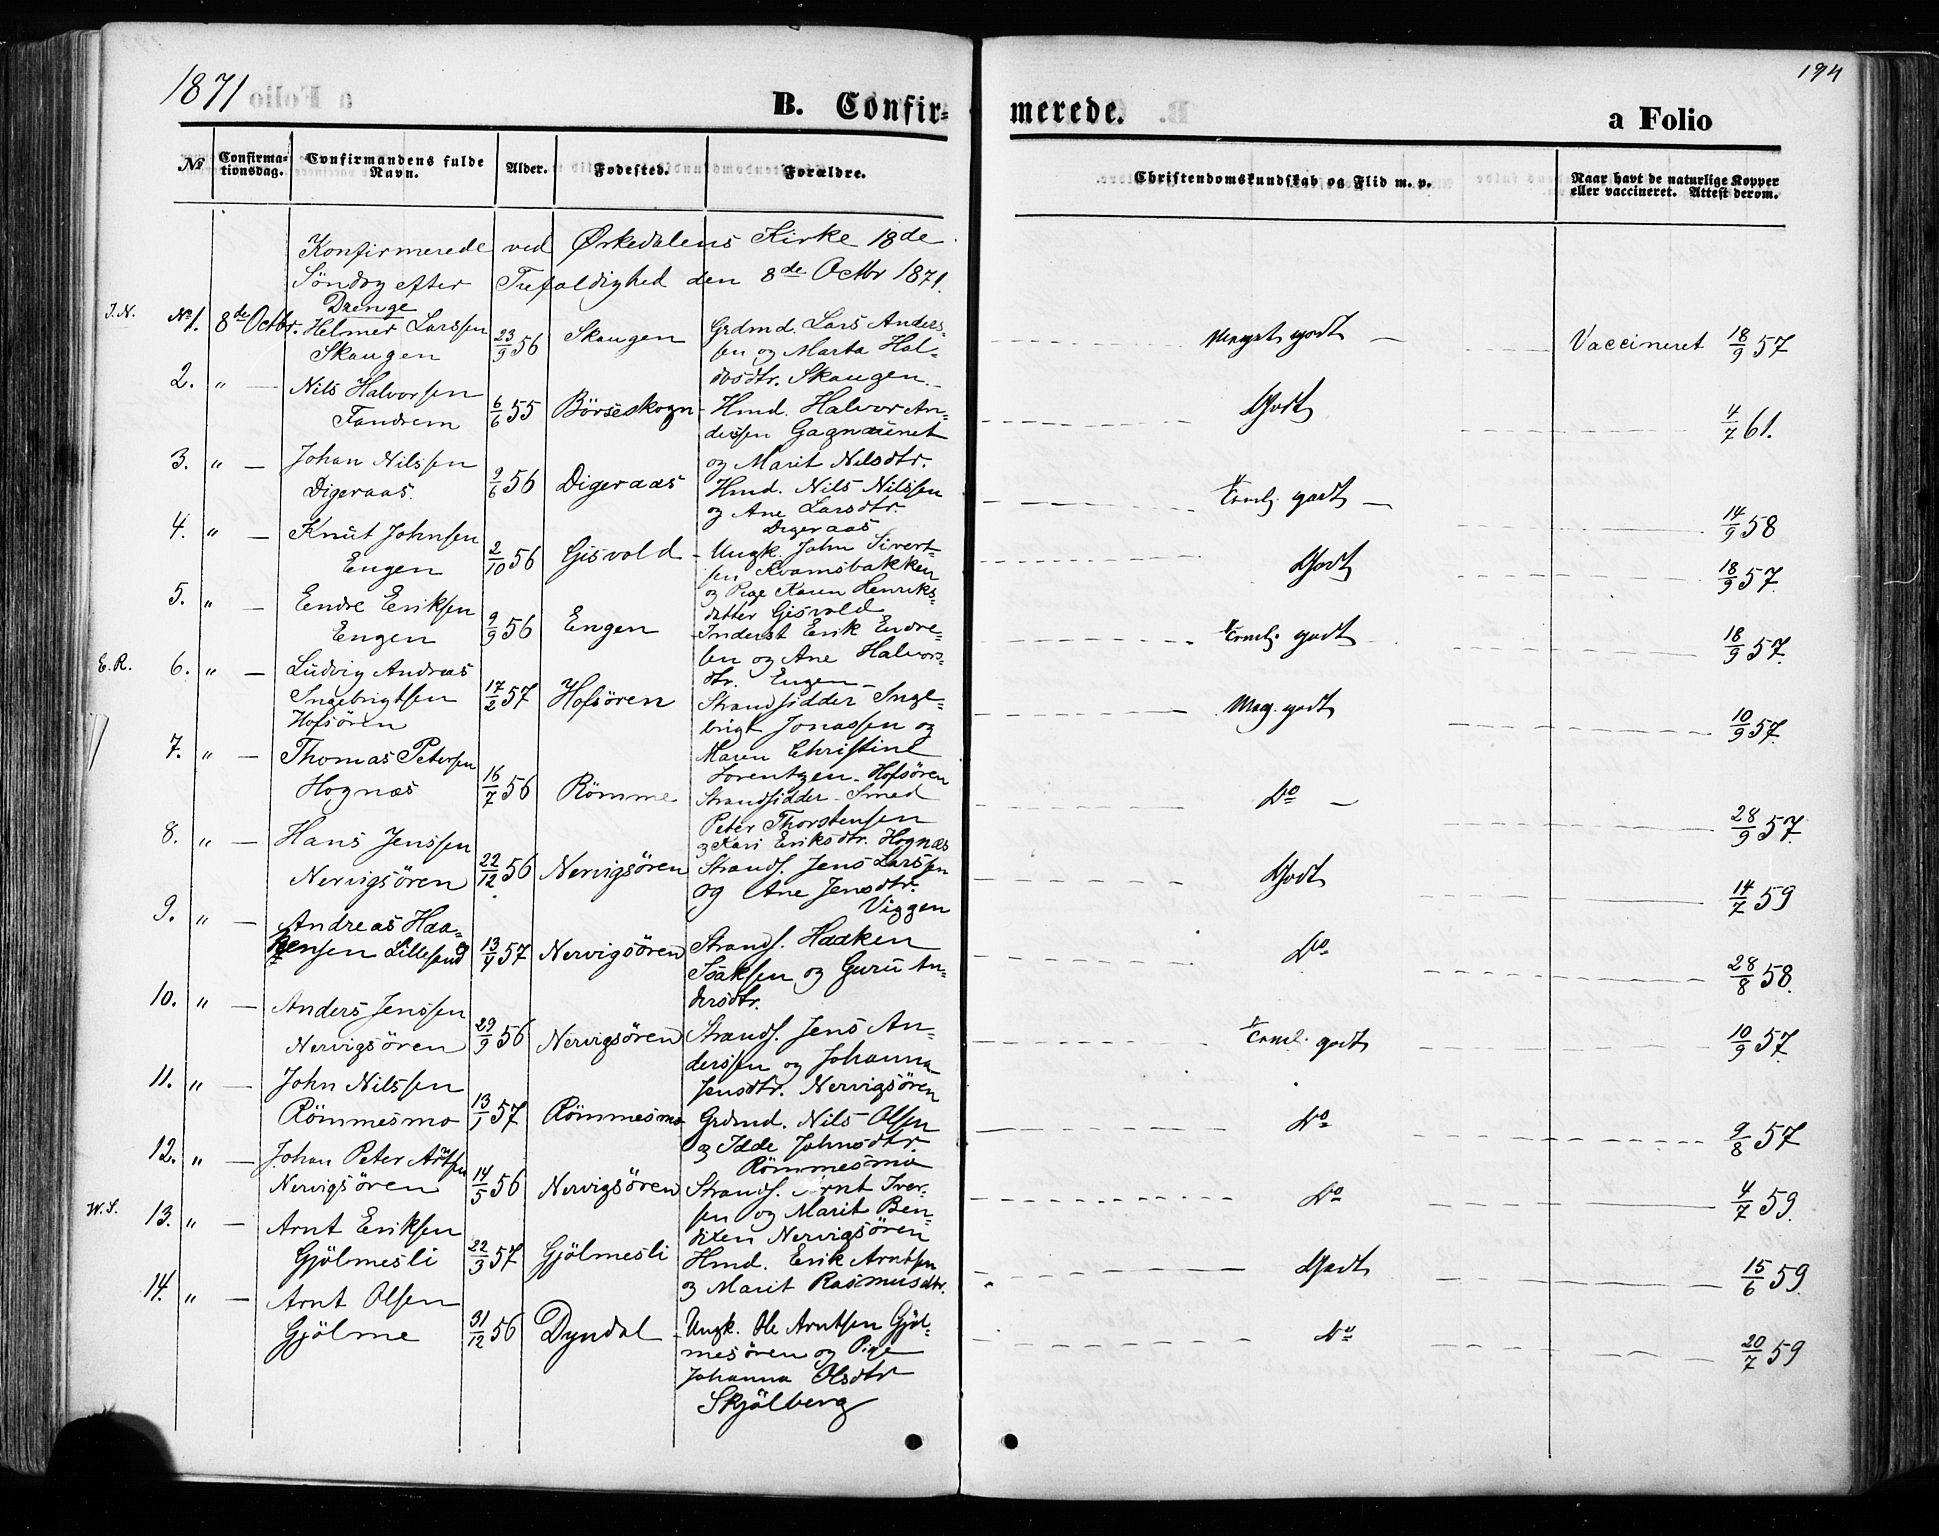 1871
194
B. Confir-
merede.
a Folio
No
Confirma-
tionsdag.
Confirmandens fulde
Navn.
Alder.
Fødested.
Forældre.
Christendomskundskab og Flid m. v.
Naar havt de naturlige Kopper
eller vaccineret. Attest derom.
Konfirmerede ved Ørkedalens Kirke 18de
Søndag efter Trefoldighed den 8de Octbr 1871.
Drenge
J.N. No 1. 8de Octbr. Helmer Larssen
Skaugen
23/9 56
Skaugen
Grdmd. Lars Anders-
sen og Marta Hal-
vosdtr. Skaugen.
Meget godt
Vaccineret 18/9 57
2. " Nils Halvorsen
Fandrem
6/6 55
Börseskogn
Hmd. Halvor An-
derssen Gagnaunet
og Marit Nilsdtr.
Godt
4/7 61.
3. " Johan Nilssen
Digeraas.
9/6 56
Digeraas
Hmd. Nils Nilssen
og Ane Larsdtr.
Digeraas
Teml. godt
14/9 58
4. " Knut Johnsen
Engen
2/10 56
Gisvold
Ungk. John Sivert-
sen Kvamsbakken
og Pige Karen Henriks-
datter Gisvold
Godt
18/9 57.
5. " Endre Eriksen
Engen
9/9 56
Engen
Inderst Erik Endre-
sen og Ane Halvors-
dtr. Engen
Teml. godt
18/9 57.
E.R. 6. " Ludvig Andreas
Ingebrigtsen
Hofsören
17/2 57
Hofsören
Strandsidder Inge-
brigt Jonassen og
Maren Christine
Lorentzen Hofsören
Meg. godt
10/9 57.
7. " Thomas Petersen
Hognæs
16/7 56
Römme
Strandsidder Smed
Peter Thorstensen
og Kari Eriksdtr. Hognæs
Do
28/9 57.
8. " Hans Jenssen
Nervigsören
22/12 56
Nervigsören
Strands. Jens Larssen
og Ane Jensdtr.
Viggen
Godt
14/7 59
9. " Andreas Haa-
kensen Lillesand
13/4 57
Nervigsören
Strands. Haaken
Isaksen og Guru An-
dersdtr.
Do
28/8 58.
10. " Anders Jenssen
Nervigsören
29/9 56
Nervigsören
Strands. Jens An-
derssen og Johanna
Jensdtr. Nervigsören
Teml. godt
10/9 57.
11. " John Nilssen
Römmesmo
13/1 57
Römmesmo
Grdmd. Nils Olsen
og Idde Johnsdtr.
Römmesmo
Do
9/8 57
12. " Johan Peter Arntsen
Nervigsören
14/5 56
Nervigsören
Strands. Arnt Iver-
sen og Marit Ben-
dixen Nervigsören
Do
4/7 59.
W.S. 13. " Arnt Eriksen
Gjölmesli
22/3 57
Gjölmesli
Hmd. Erik Arntsen
og Marit Rasmusdtr.
Godt
15/6 59.
14. " Arnt Olsen
Gjölme
31/12 56
Dyndal
Ungk. Ole Arntsen Gjöl-
mesören og Pige
Johanna Olsdtr
Skjölberg
Do
20/7 59